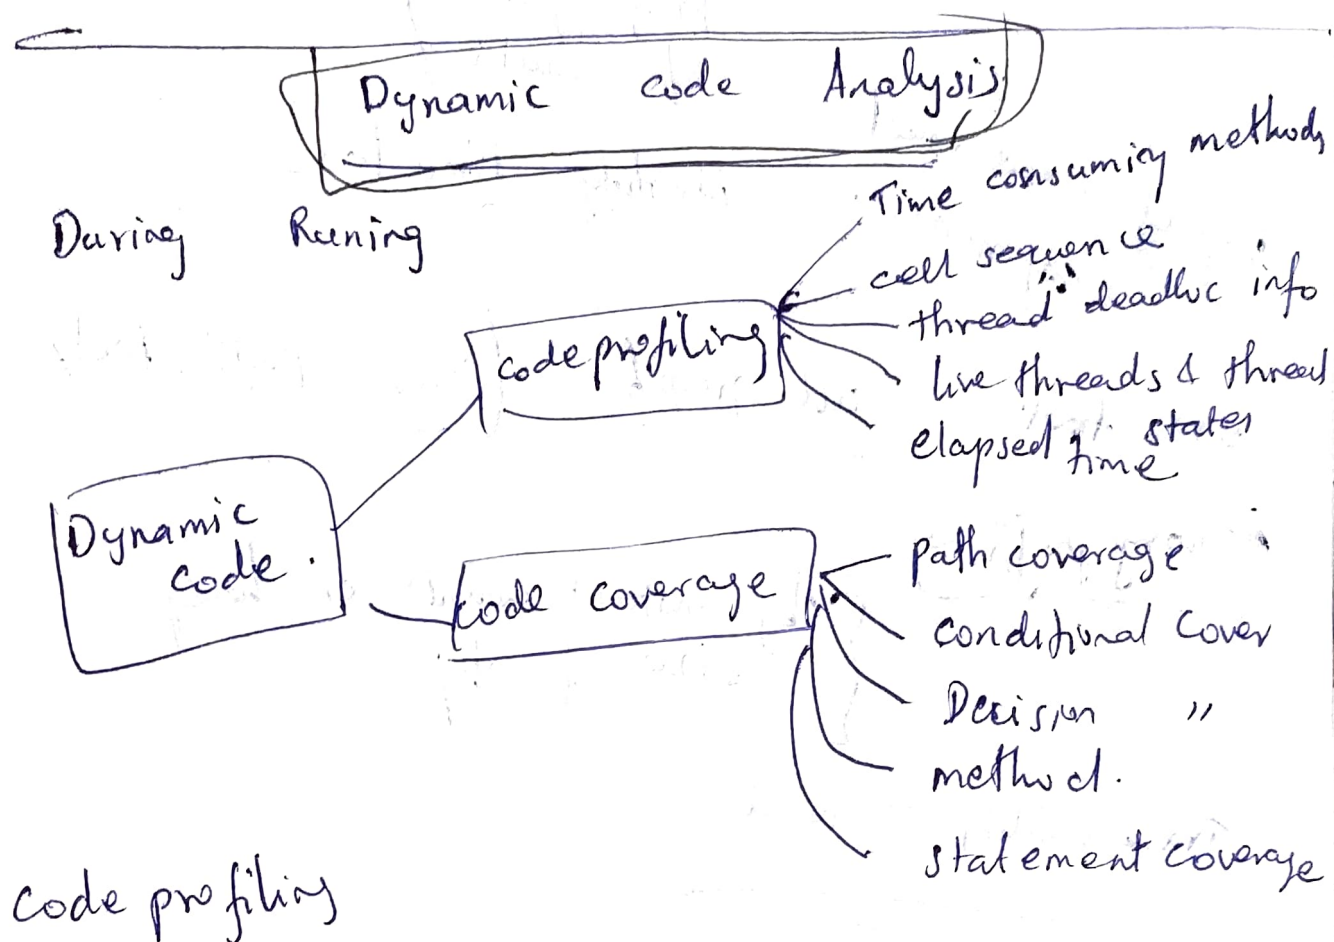 Dynamic code Analysis
During Runing
Time consuming methods
call sequence
thread deadloc info
live threads & thread
states
elapsed time
code profiling
Dynamic
code.
code coverage
path coverage
conditional cover
Decision "
method.
statement coverage
Code profiling